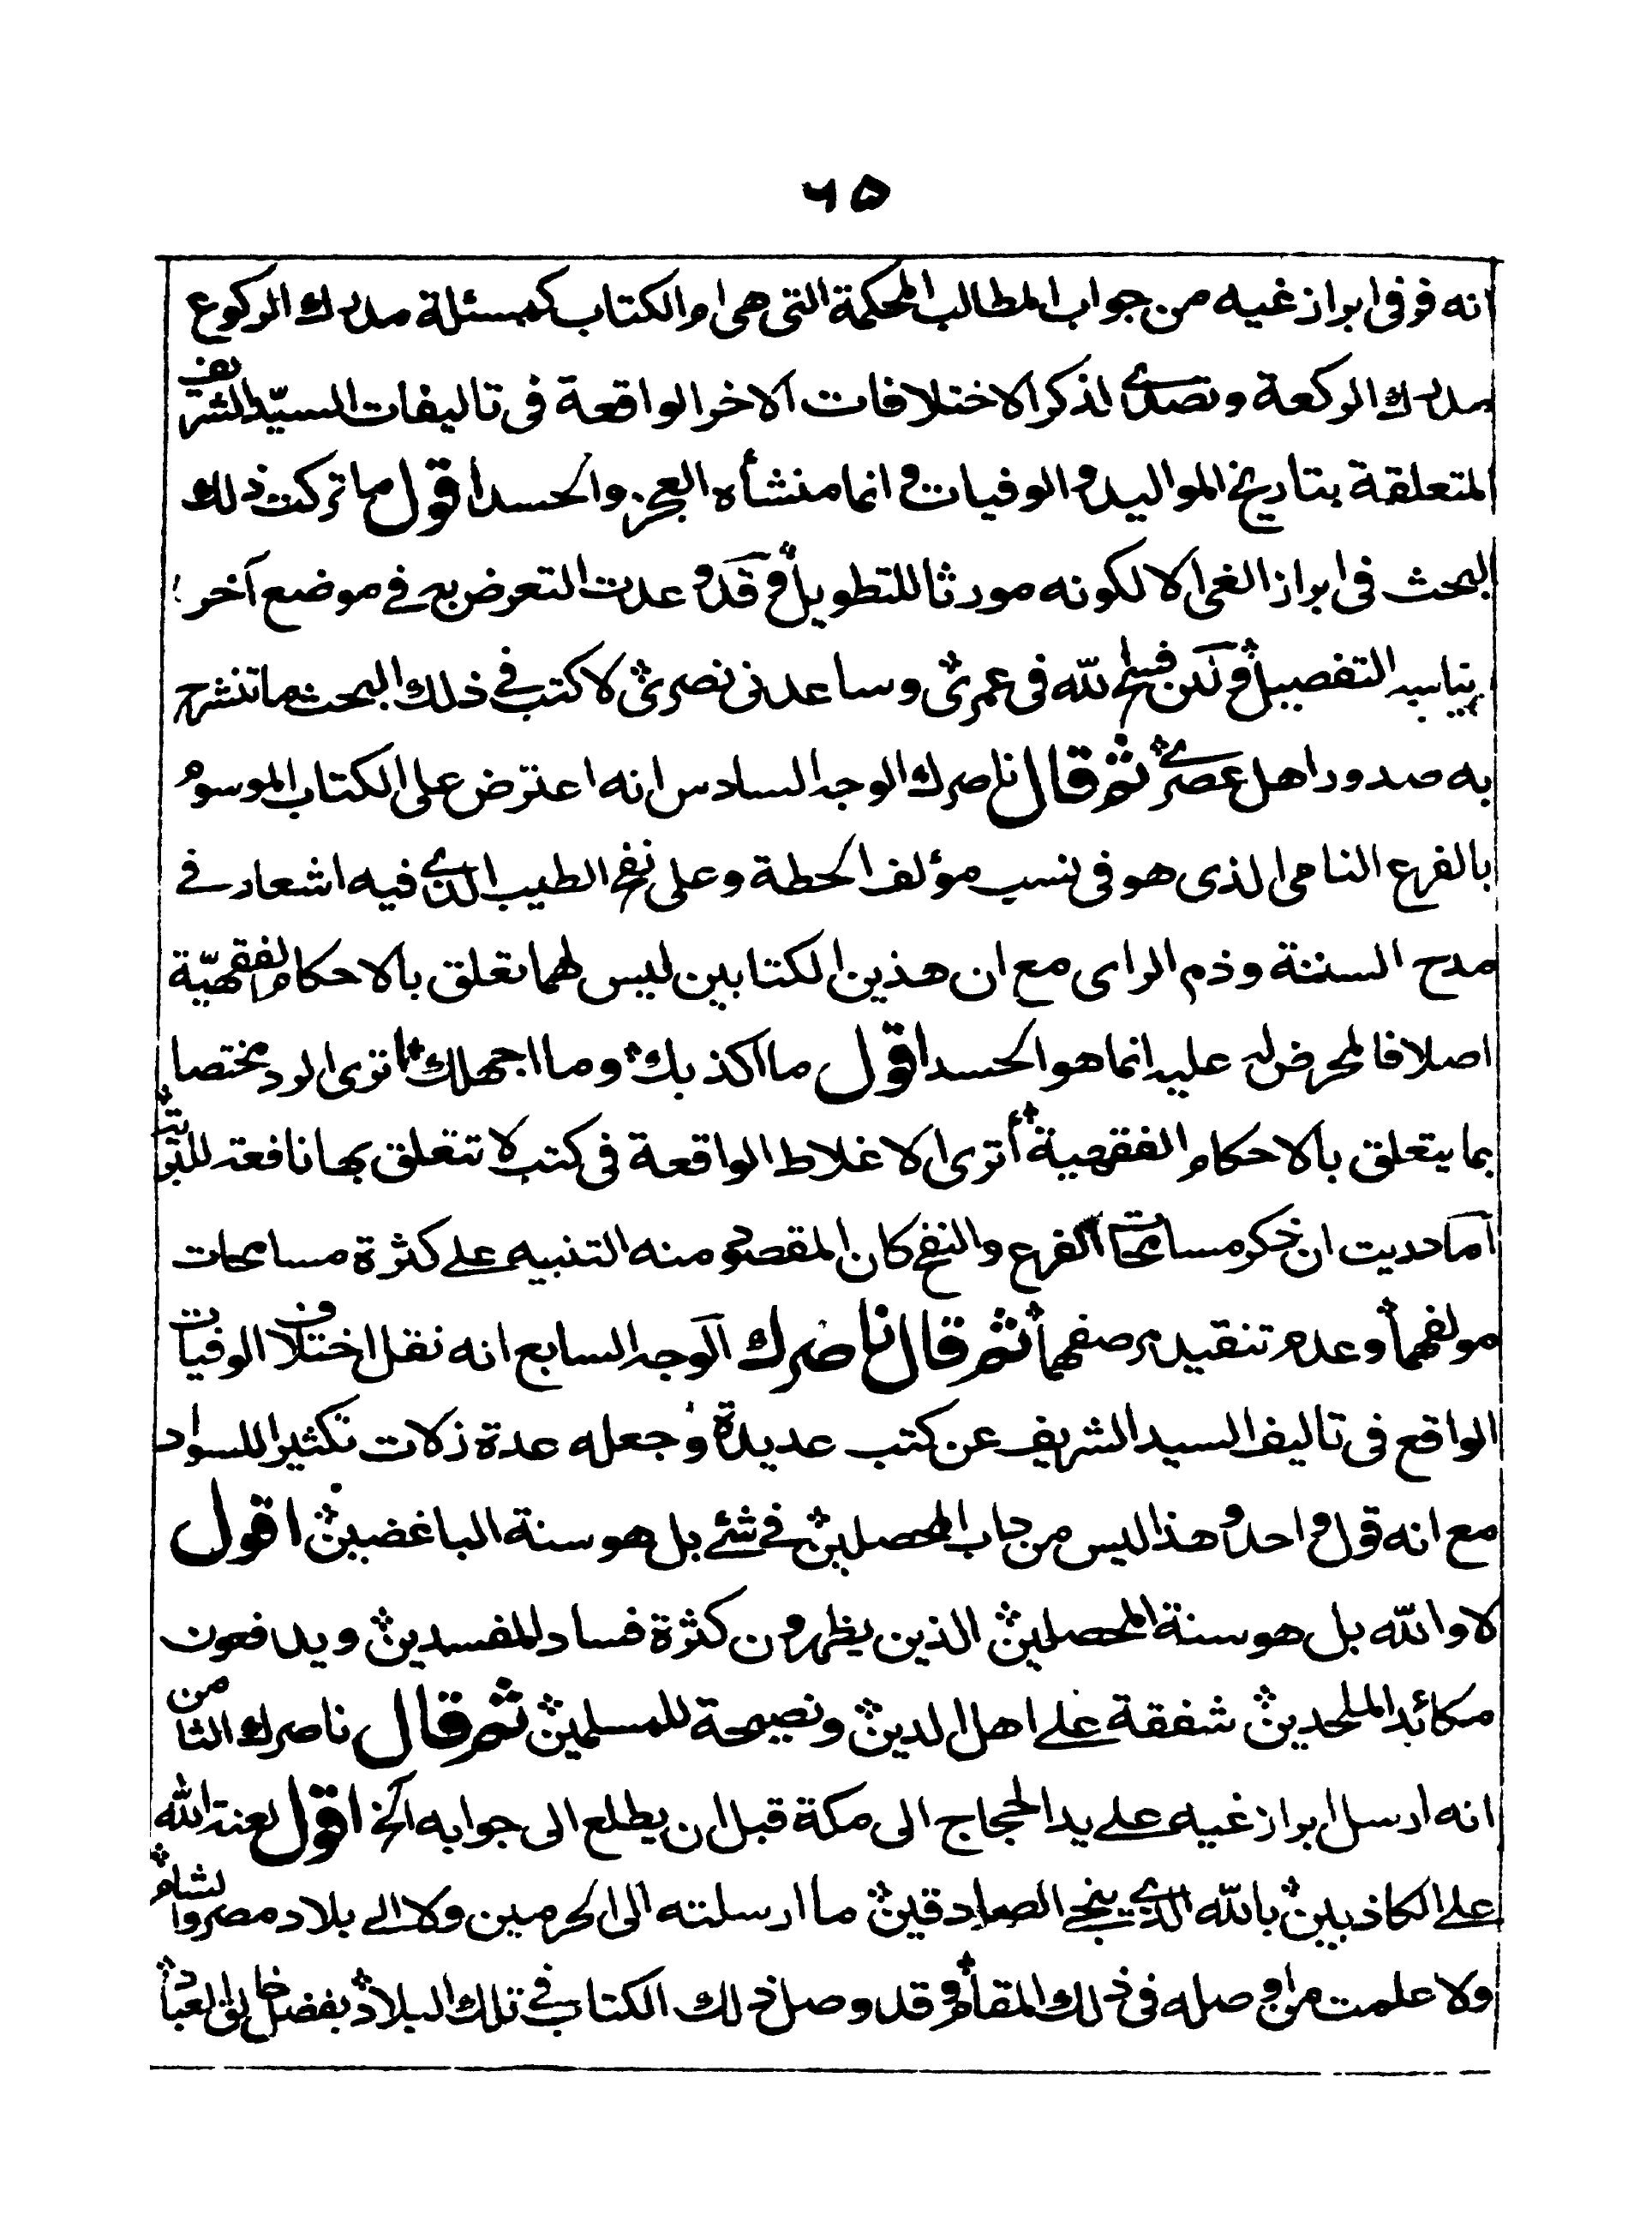 ٦٥
انه فر فى ابراز غيه من جواب المطالب المحكمة التى هى ام الكتاب كمسئلة مدرك الركوع
مدرك الركعة وتصدى لذكر الاختلافات الاخر الواقعة فى تاليفات السيّد الشريف
المتعلقة بتاريخ المواليد والوفيات وانما منشأه العجز والحسد اقول ما تركت ذلك
البحث فى ابراز الغى الا لكونه مورثا للتطويل وقد وعدت التعرض به فے موضع آخر
يناسبه التفصيل ولئن فسح الله فى عمرى وساعدنى نصرى لاكتب فے ذلك البحث ما تنشرح
به صدور اهل عصرى ثم قال ناصرك الوجه السادس انه اعترض على الكتاب الموسوم
بالفرع النامى الذى هو فى نسب مؤلف الحطة وعلى نفح الطيب الذى فيه اشعار فے
مدح السنة وذم الراى مع ان هذين الكتابين ليس لهما تعلق بالاحكام الفقهيّة
اصلا فالمحرض له عليه انما هو الحسد اقول ما اكذبك وما اجهلك اترى الرد مختصا
بما يتعلق بالاحكام الفقهية أترى الاغلاط الواقعة فى كتب لا تتعلق بها نافعة
اما دريت ان ذكر مسامحات الفرع والنفح كان المقصود منه التنبيه علے كثرة مسامحات
مولفهما وعدم تنقيد مرصفهما ثم قال ناصرك الوجه السابع انه نقل اختلاف الوفيات
الواقع فى تاليف السيد الشريف عن كتب عديدة وجعله عدة زلات تكثيرا للسواد
مع انه قول واحد وهذا ليس من داب المحصلين فے شئے بل هو سنة الباغضين اقول
لا والله بل هو سنة المحصلين الذين يظهرون كثرة فساد المفسدين ويدفعون
مكائد الملحدين شفقة علے اهل الدين ونصيحة للمسلمين ثم قال ناصرك الثامن
انه ارسل ابراز غيه علے يد الحجاج الى مكة قبل ان يطلع الى جوابه آلخ اقول لعنة الله
علے الكاذبين بالله الذى ينجے الصادقين ما ارسلته الى الحرمين ولا الے بلاد مصر والشام
ولا علمت من اوصله فى ذلك المقام وقد وصل ذلك الكتاب فے تلك البلاد بفضل خالق العباد